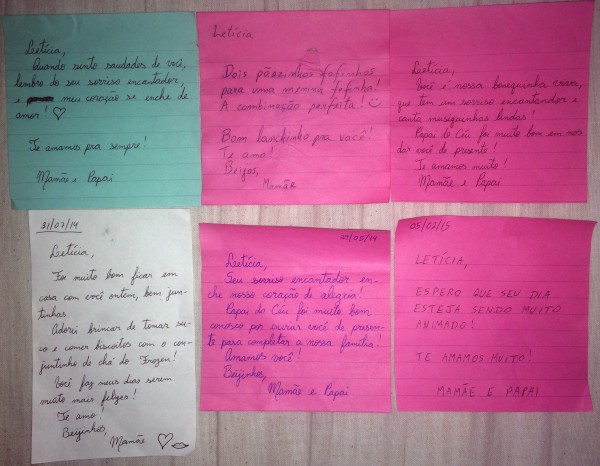 Letícia,
Quando sinto saudades de você,
lembro do seu sorriso encantador,
e meu coração se enche de
amor! ♡
Te amamos pra sempre!
Mamãe e Papai
Letícia
Dois pãezinhos fofinhos
para uma menina fofinha!
A combinação perfeita! ☺
Bom lanchinho pra você!
Te amo!
Beijos,
Mamãe
Letícia,
Você é nossa bonequinha viva,
que tem um sorriso encantandor e
canta musiquinhas lindas!
Papai do Céu foi muito bom em nos
dar você de presente!
Te amamos muito!
Mamãe e Papai
31/07/14
Letícia,
Foi muito bom ficar em
casa com você ontem, bem jun-
tinhas.
Adorei brincar de tomar su-
co e comer biscoitos com o con-
juntinho de chá do Frozen!
Você faz meus dias serem
muito mais felizes!
Te amo!
Beijinhos,
Mamãe ♡
27/05/14
Letícia,
Seu sorriso encantador en-
che nosso coração de alegria!
Papai do Céu foi muito bom
conosco por enviar você de presen-
te para completar a nossa família!
Amamos você!
Beijinhos,
Mamãe e Papai
05/02/15
LETÍCIA,
ESPERO QUE SEU DIA
ESTEJA SENDO MUITO
ANIMADO!
TE AMAMOS MUITO!
MAMÃE E PAPAI